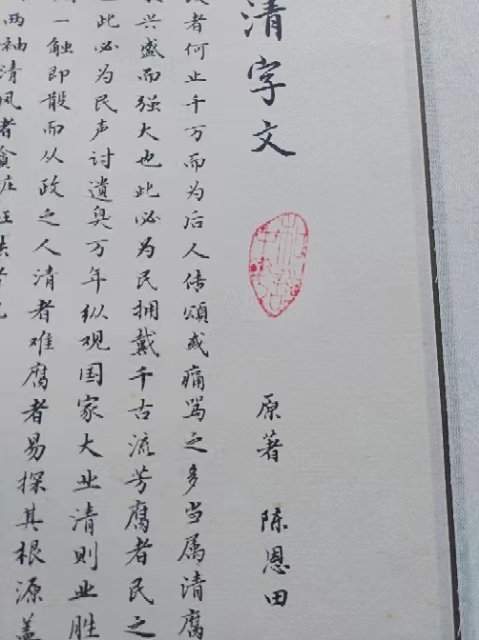 清字文
原著 陈恩田
者何止千万而为后人传颂或痛骂之多当属清腐
兴盛而强大也此必为民拥戴千古流芳腐者民之
此必为民声讨遗臭万年纵观国家大业清则业胜
一触即散而从政之人清者难腐者易探其根源盖
两袖清风者贪